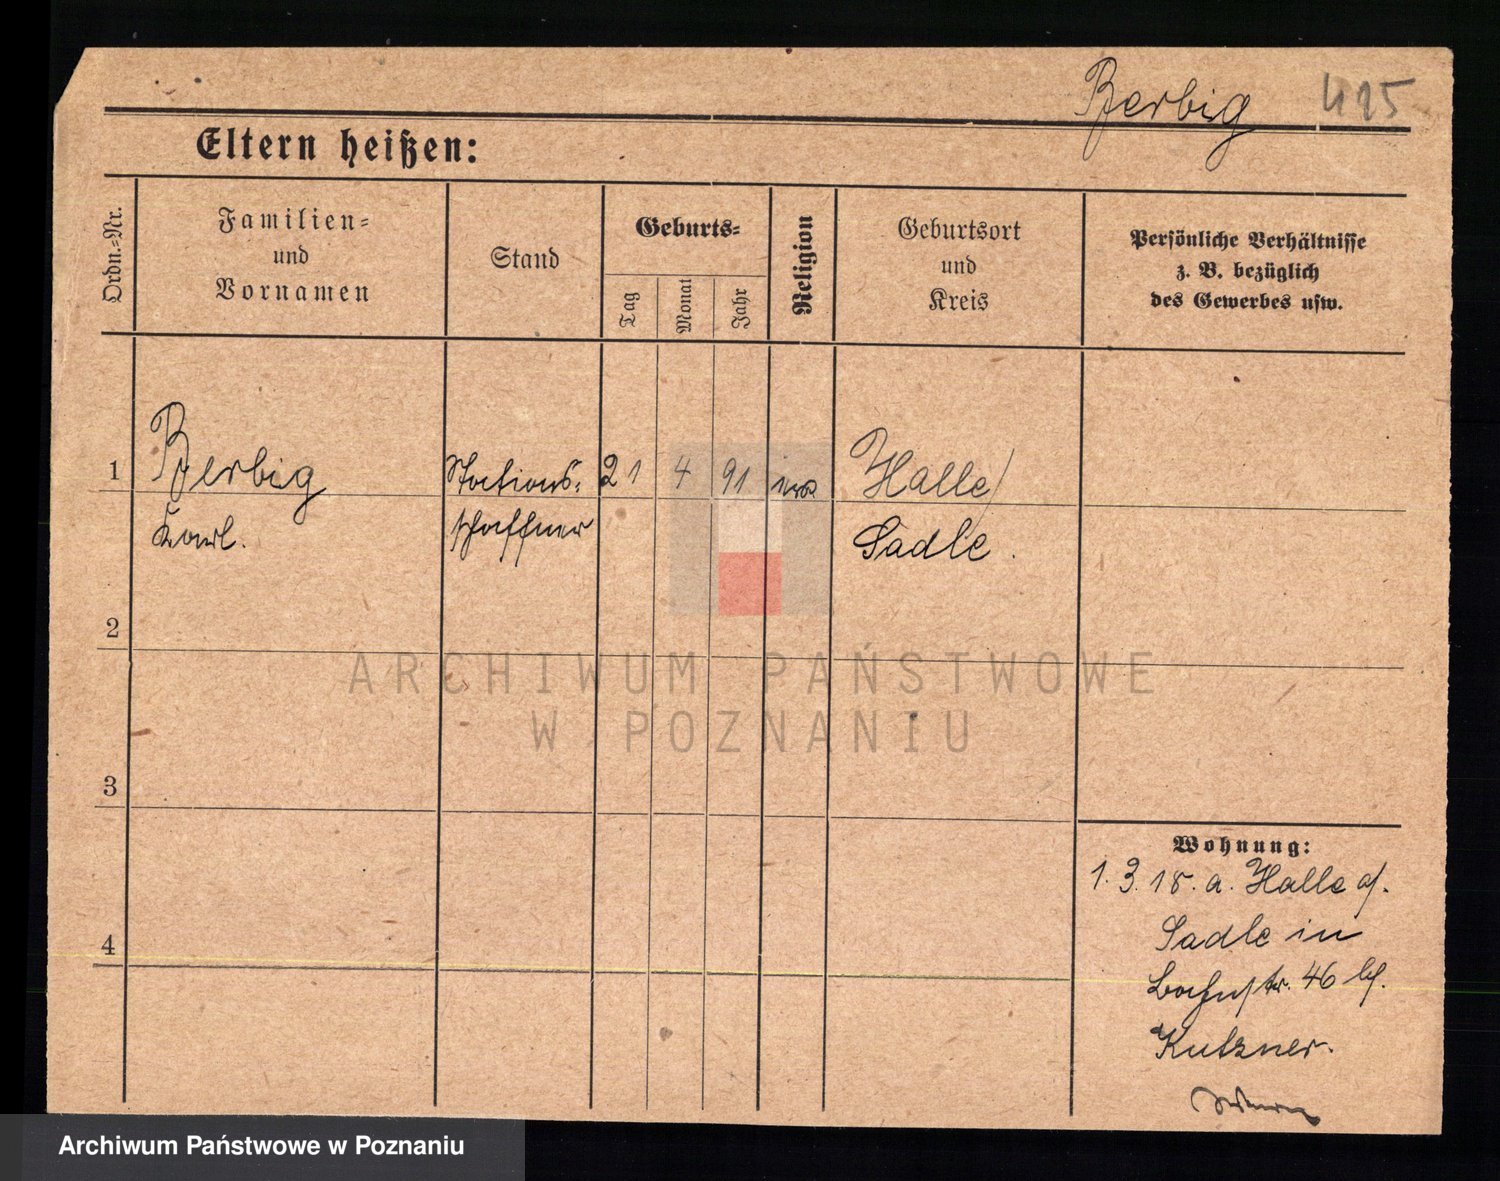 Berbig 425
Eltern heißen:
Ordn.-Nr.
Familien-
und
Vornamen
Stand
Geburts-
Tag
Monat
Jahr
Religion
Geburtsort
und
Kreis
Persönliche Verhältnisse
z. B. bezüglich
des Gewerbes usw.
1 Berbig Stations- 21 4 91 Halle/
Karl. schaffner Sadle.
2
3
4
Wohnung:
1. 3. 18. a. Halle a/.
Sadle in
Bahnstr. 46 bf.
Kutzner.
ARCHIWUM PAŃSTWOWE
W POZNANIU
Archiwum Państwowe w Poznaniu